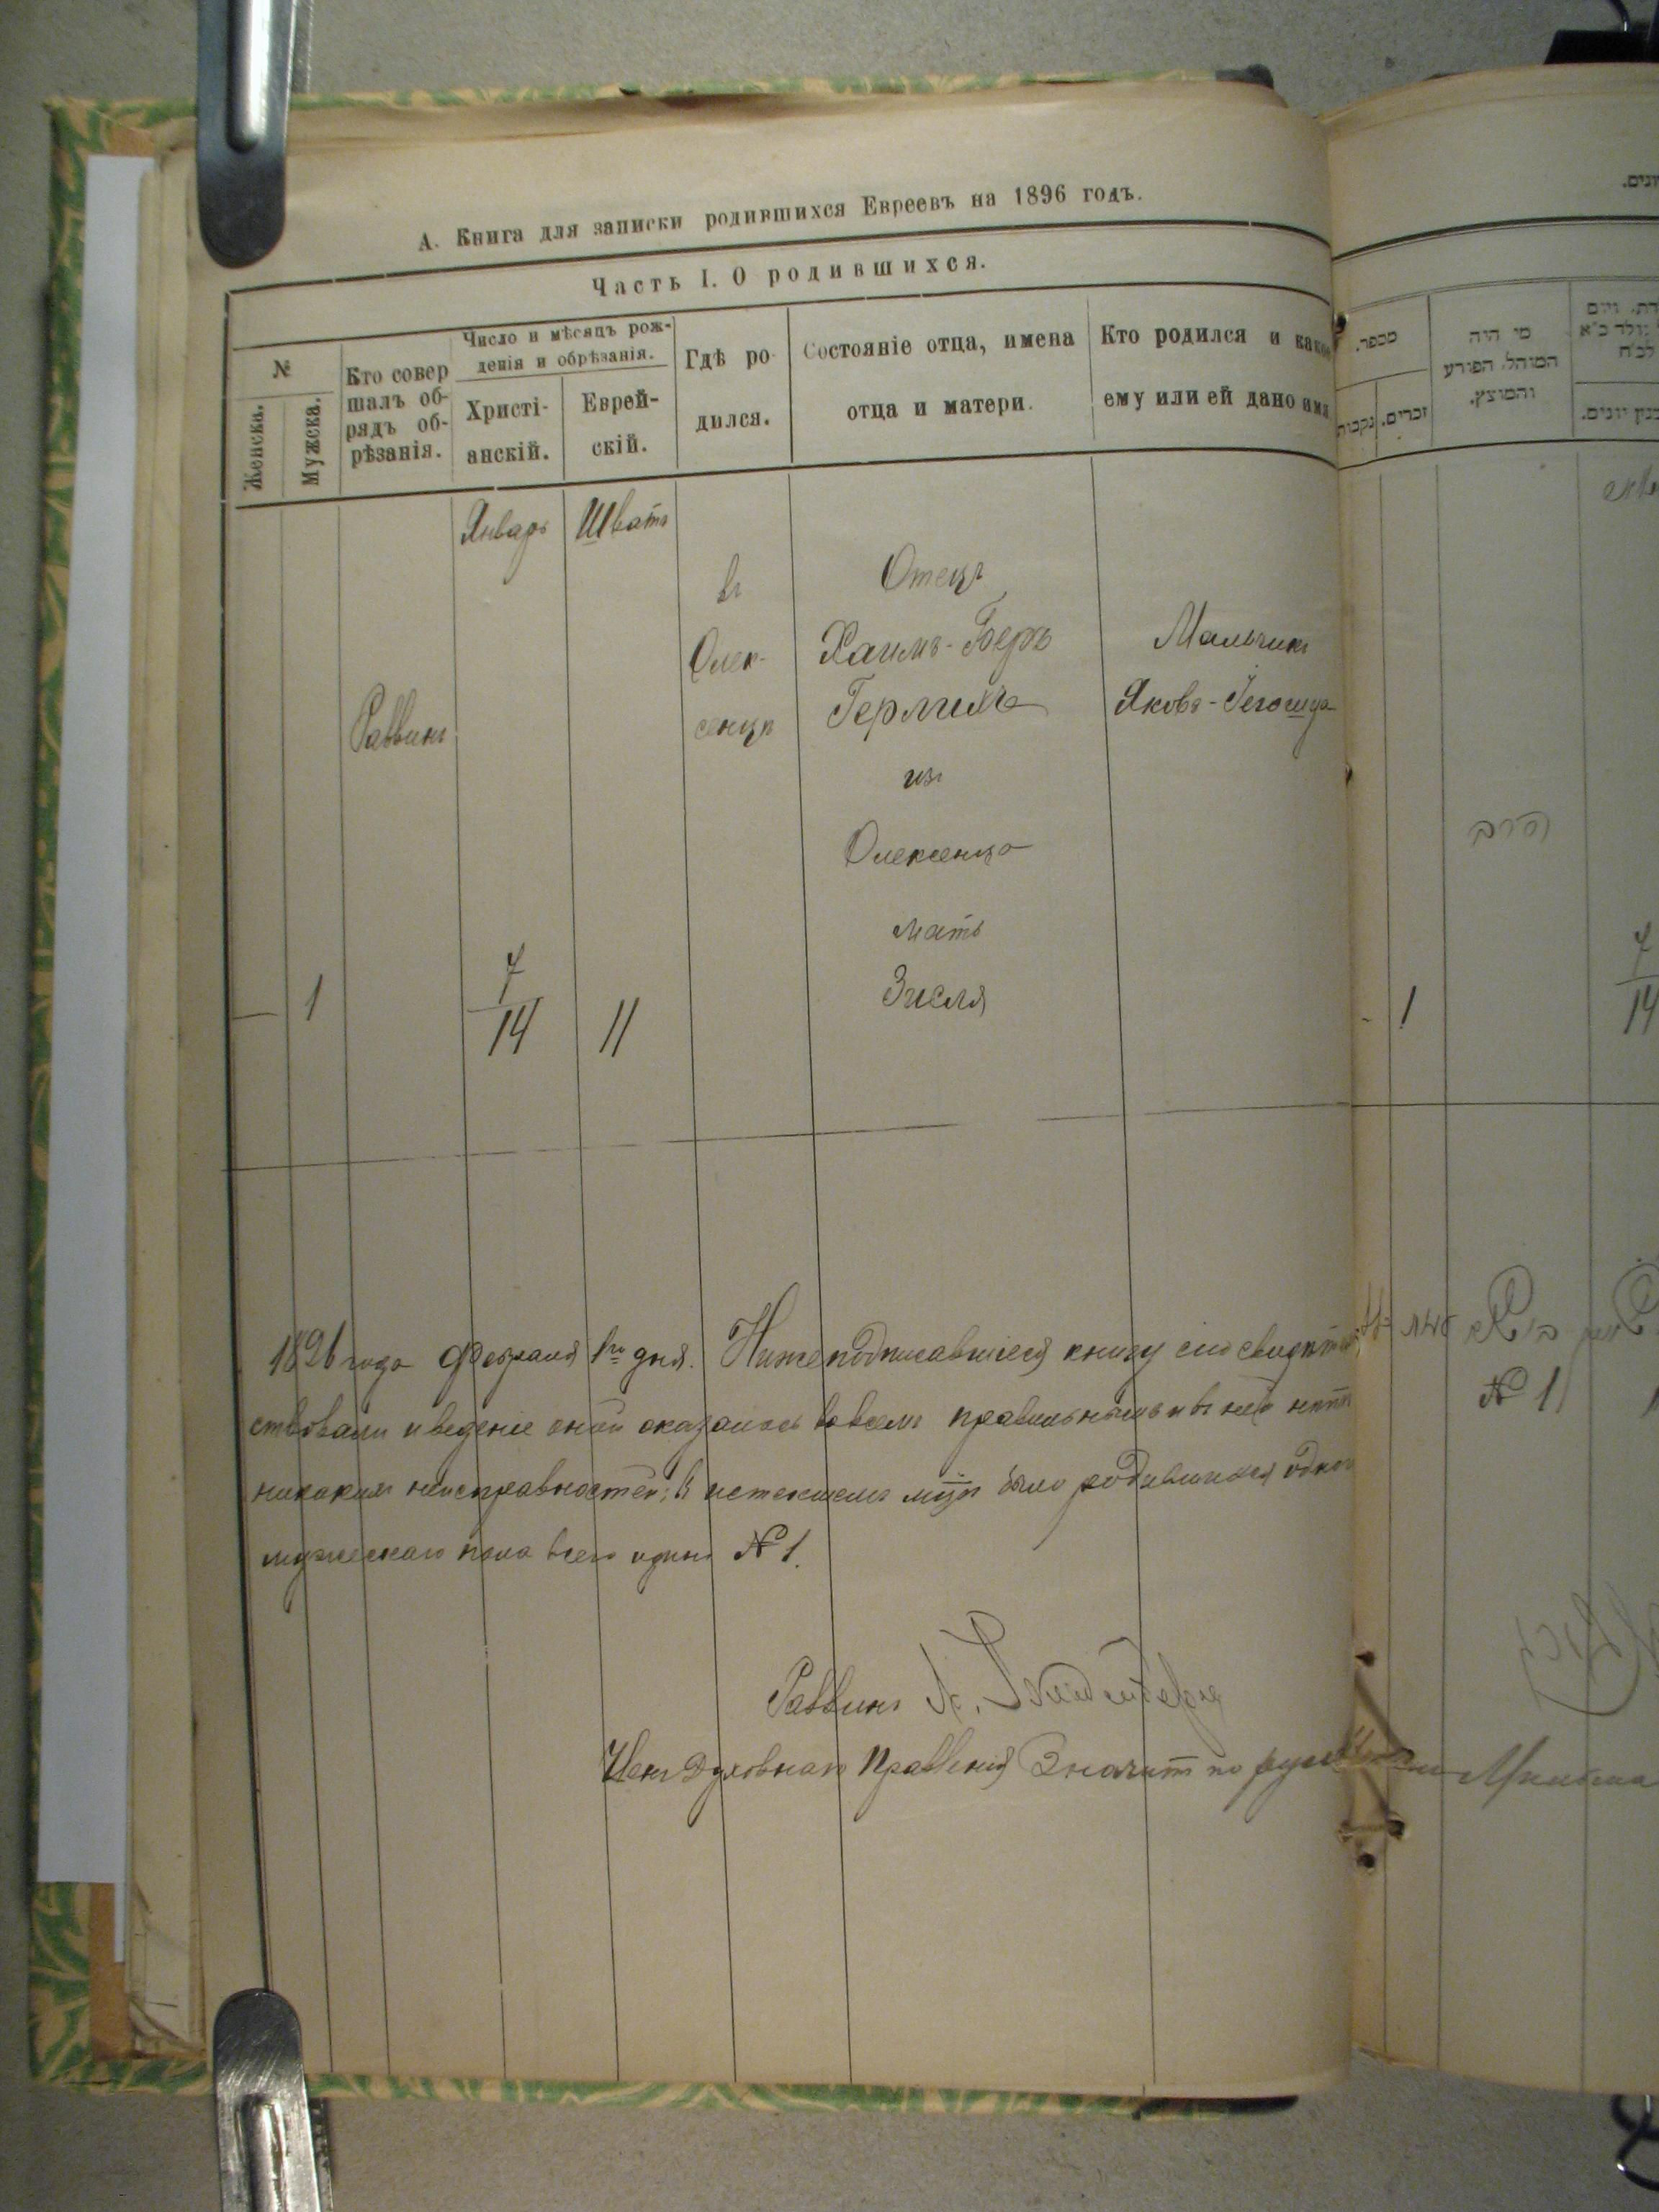 А. Книга для записки родившихся Евреевъ на 1896 годъ.
Часть I. О родившихся.
№
Женска.
Мужска.
Кто совер
шалъ об-
рядъ об-
рѣзанія.
Число и мѣсяцъ рож-
денія и обрѣзанія.
Христі-
анскій.
Еврей-
скій.
Гдѣ ро-
дился.
Состояніе отца, имена
отца и матери.
Кто родился и какое
ему или ей дано имя
Январь Шватъ
въ
Олек-
сенцѣ
Отецъ
Хаимъ-Беръ
Герлихъ
изъ
Олексенца
мать
Зисля
Мальчикъ
Яковъ-Іегошуа
Раввинъ
— 1
7
14
11
1896 года Февраля 1го дня. Нижеподписавшіеся книгу сію свидѣтель
ствовали и веденіе оной оказалось во всемъ правильнымъ и въ ней нѣтъ
никакихъ неисправностей; въ истекшемъ мцѣ было родившихся одного
мужескаго пола всего одинъ № 1.
Раввинъ
Членъ Духовнаго Правленія Значитъ по
מספר.
נקבות
זכרים.
מי היה
המוהל, הפורע
והמוצץ.
הרב
- 1
7
14
№ 1